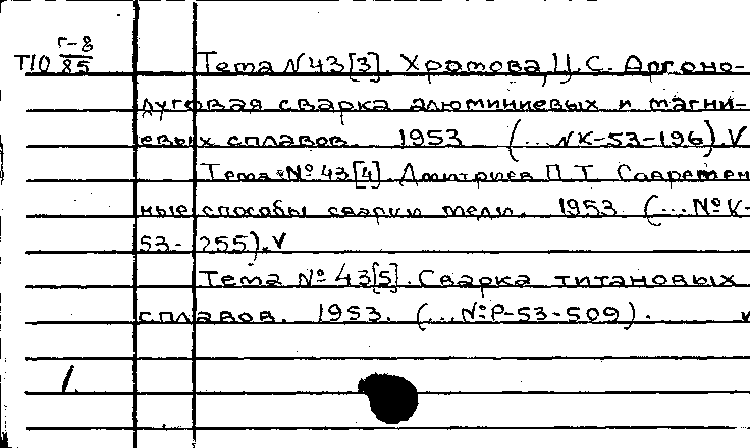 Т10 Г-8/85
Тема N43[3]. Хромова, Ц.С. Аргоно-
дуговая сварка алюминиевых и магни-
евых сплавов. 1953 (...NК-53-196).V
Тема №43[4]. Дмитриев П.Т. Современ
ные способы сварки меди. 1953. (...№К-
53-255).V
Тема №43[5]. Сварка титановых
сплавов. 1953. (...№Р-53-509). V
1.